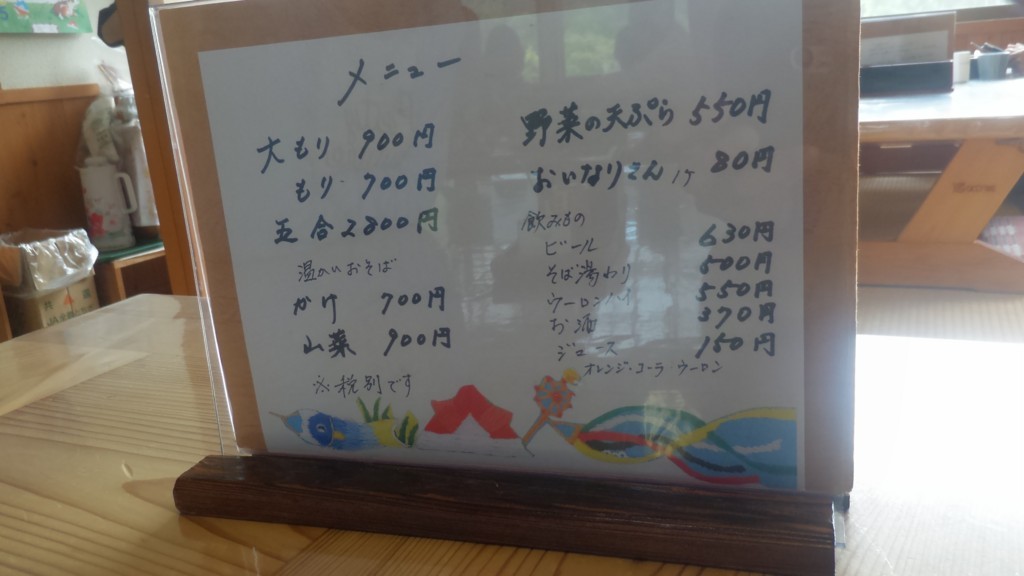 メニュー
大もり 900円
もり 700円
五合 2800円
温かいおそば
かけ 700円
山菜 900円
※税別です
野菜の天ぷら 550円
おいなりさん 1ケ 80円
飲みもの
ビール 630円
そば湯わり 500円
ウーロンハイ 550円
お酒 370円
ジュース 150円
オレンジ・コーラ ウーロン